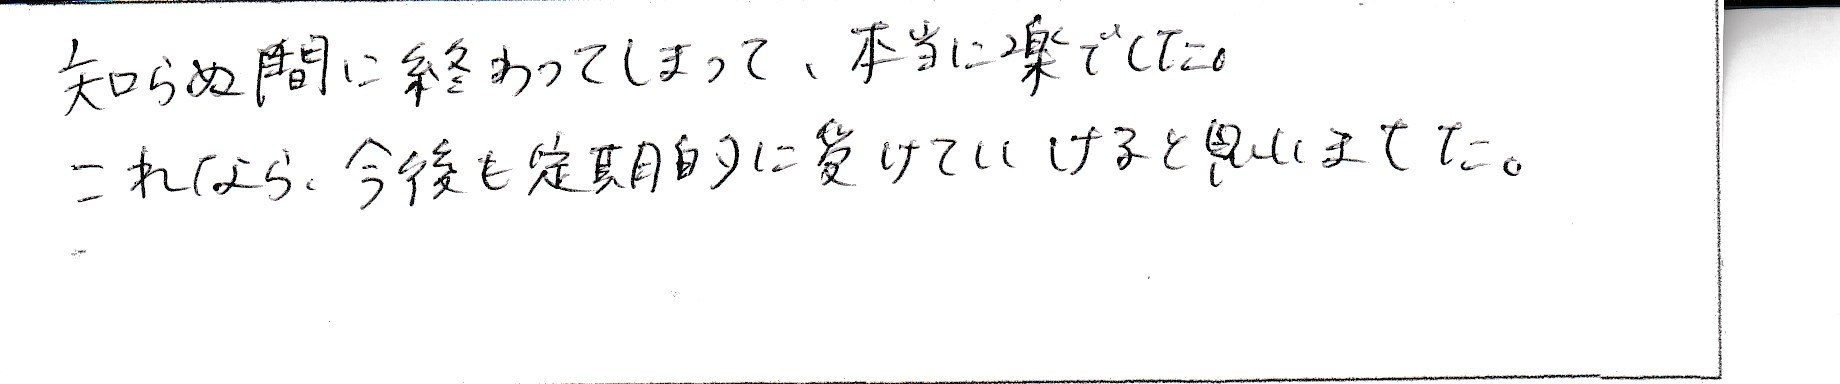 知らぬ間に終わってしまって、本当に楽でした。
これなら、今後も定期的に受けていけると思いました。